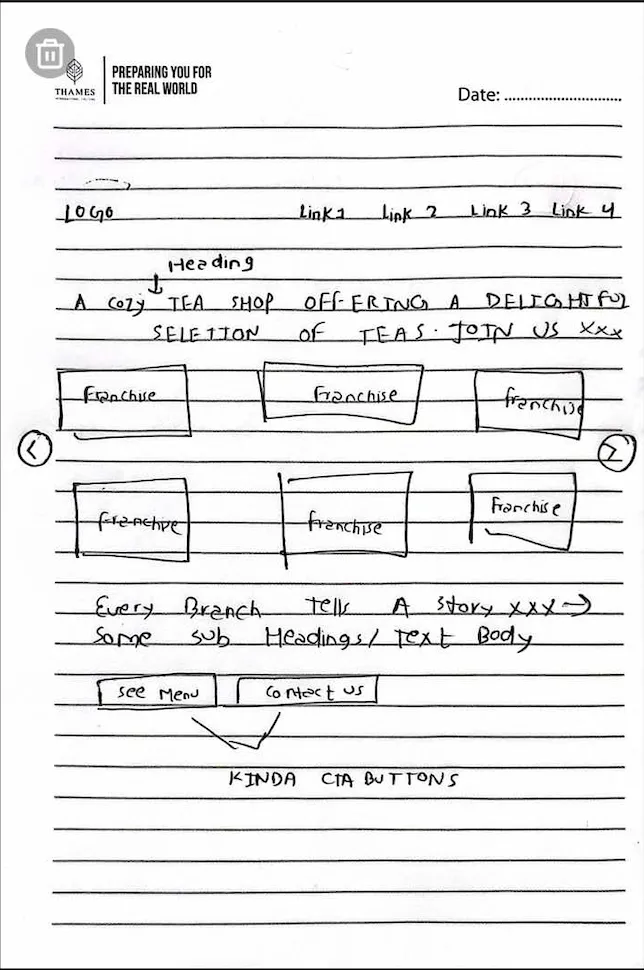 THAMES
PREPARING YOU FOR
THE REAL WORLD
Date: ..............................
LOGO Link1 Link 2 Link 3 Link 4
Heading
A cozy TEA SHOP OFFERING A DELIGHTFUL
SELETION OF TEAS. JOIN US xxx
Franchise Franchise franchise
< >
Franchise franchise Franchise
Every Branch Tells A Story xxx →
Some sub Headings/ Text Body
See Menu Contact us
KINDA CTA BUTTONS